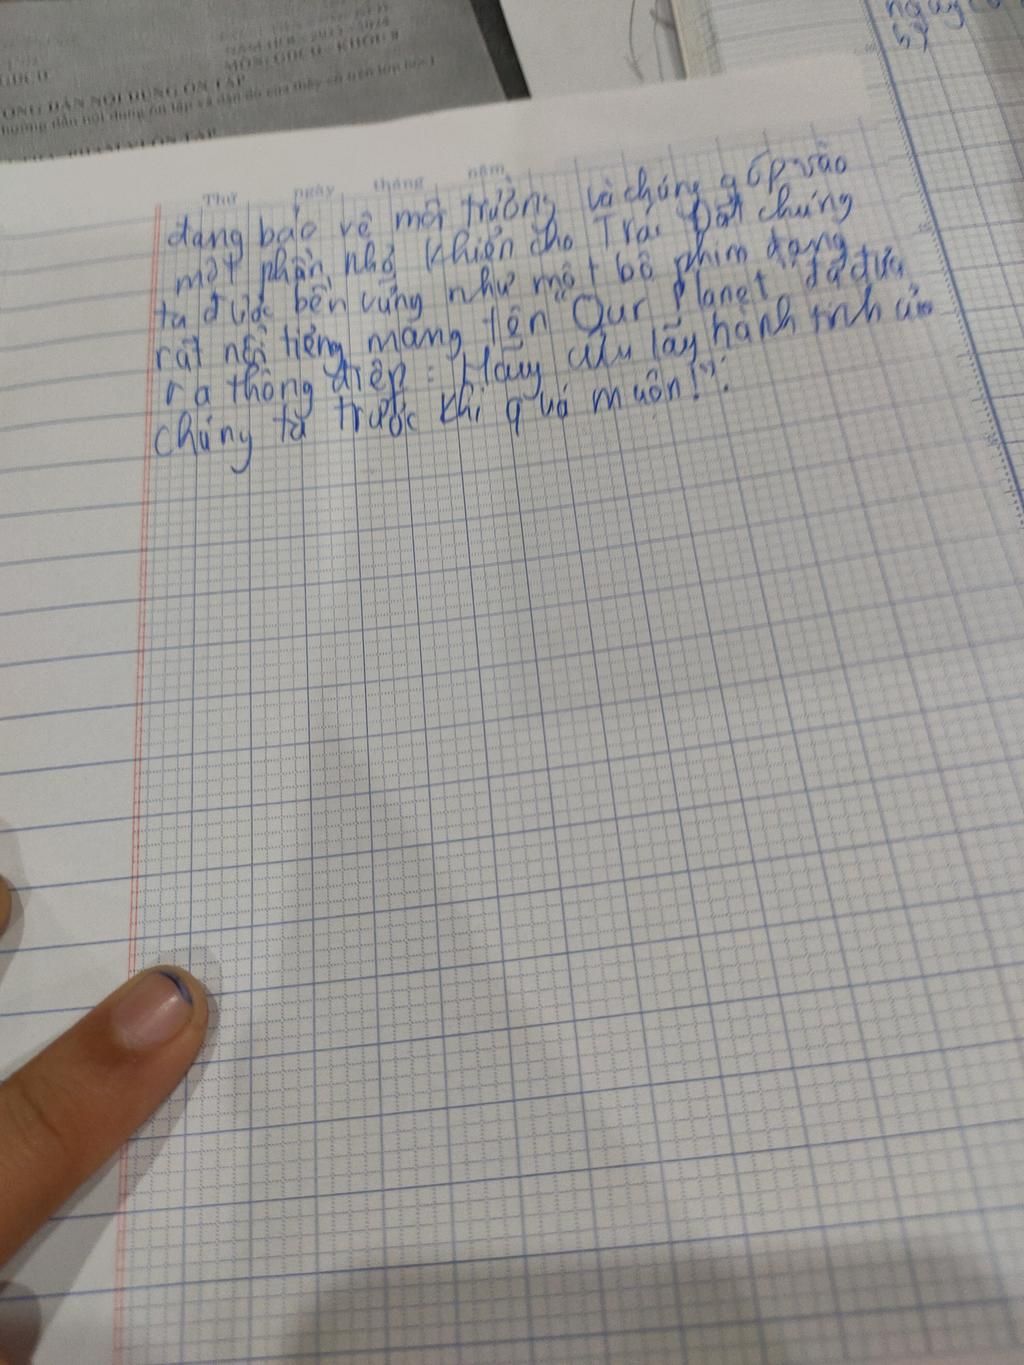 NĂM HỌC: 2023 - 2024
MÔN: GDCD - KHỐI 8
GDCD
DẪN NỘI DUNG ÔN TẬP
hướng dẫn nội dung ôn tập và dặn dò của thầy cô trên lớp học)
ÔN TẬP
ngày
Thứ ngày tháng năm
đang bảo vệ môi trường và chúng góp vào
một phần nhỏ khiến cho Trái Đất chúng
ta được bền vững như một bộ phim đang
rất nổi tiếng mang tên "Our Planet" đã đưa
ra thông điệp: "Hãy cứu lấy hành tinh của
chúng ta trước khi quá muộn!".